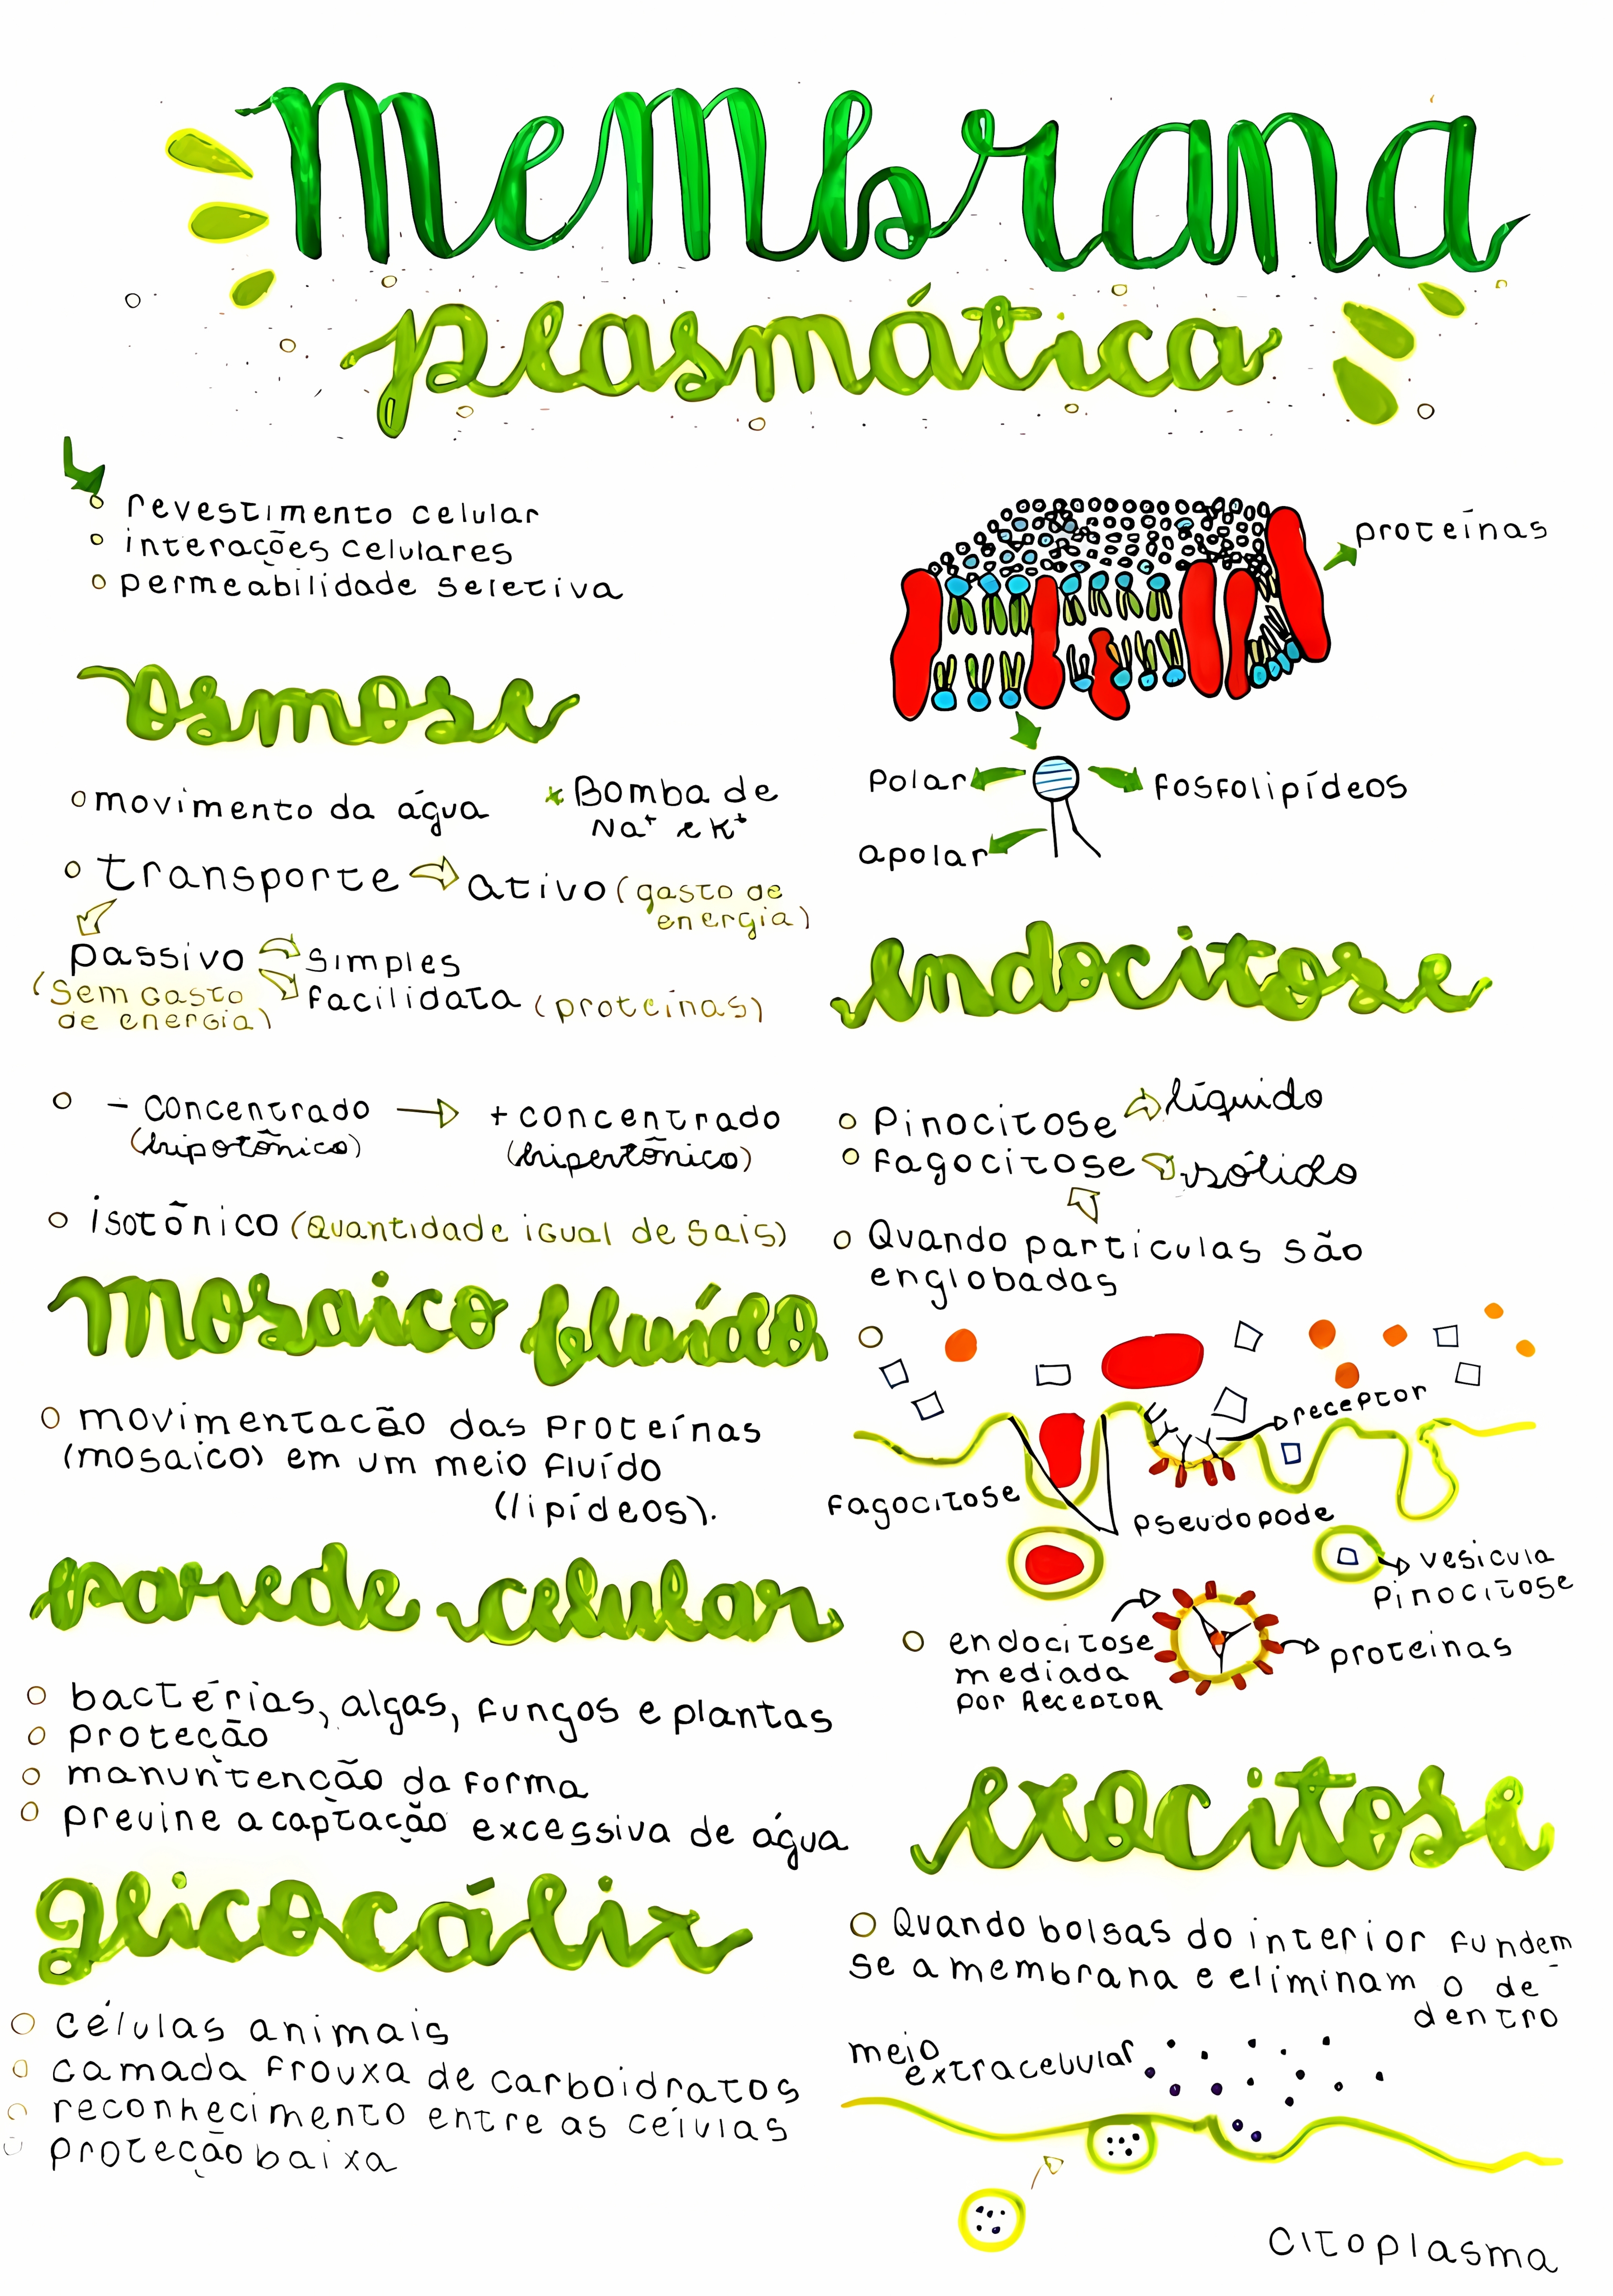 Membrana
plasmática
revestimento celular
interações celulares
permeabilidade seletiva
proteínas
Polar
fosfolipídeos
apolar
Osmose
movimento da água
* Bomba de
Na⁺ e K⁺
transporte ativo (gasto de
energia)
passivo simples
(sem gasto
de energia)
facilidata (proteínas)
- concentrado → + concentrado
(hipotônico) (hipertônico)
isotônico (quantidade igual de sais)
Mosaico fluído
movimentação das proteínas
(mosaico) em um meio fluído
(lipídeos).
Parede celular
bactérias, algas, fungos e plantas
proteção
manuntenção da forma
previne a captação excessiva de água
Glicocálix
células animais
camada frouxa de carboidratos
reconhecimento entre as células
proteção baixa
Endocitose
Pinocitose líquido
fagocitose sólido
Quando partículas são
englobadas
receptor
fagocitose
pseudopode
vesicula
Pinocitose
endocitose
mediada
por receptor
proteinas
Exocitose
Quando bolsas do interior fundem-
se a membrana e eliminam o de
dentro
meio
extracelular
citoplasma